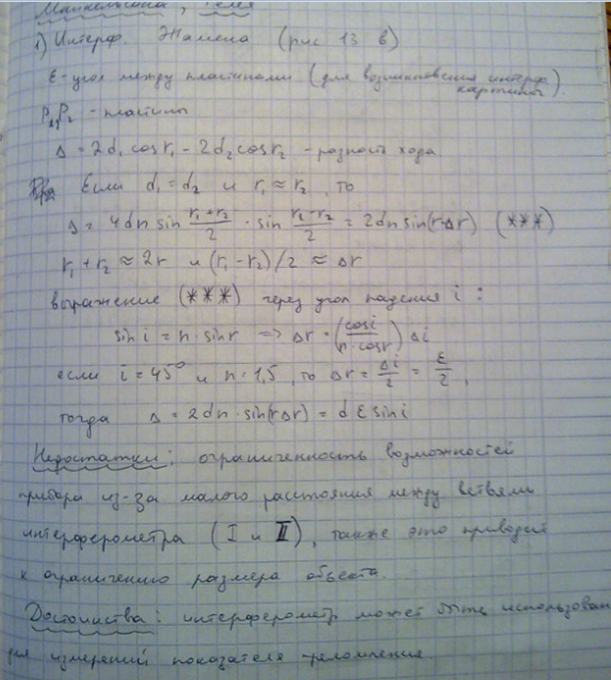 Майкельсона, Тейл
1) Интерф. Жамена (рис 13 в)
ε - угол между пластинами (для возникновения интерф. картины).
P₁, P₂ - пластины
Δ = 2d₁ cos r₁ - 2d₂ cos r₂ - разность хода
Если d₁ = d₂ и r₁ ≈ r₂, то
Δ = 4dn sin (r₁+r₂)/2 · sin (r₁-r₂)/2 = 2dn sin(r·Δr) (***)
r₁ + r₂ ≈ 2r и (r₁ - r₂)/2 ≈ Δr
выражение (***) через угол падения i :
sin i = n · sin r => Δr = (cos i / n·cos r) Δi
если i = 45° и n = 1,5, то Δr = Δi/2 = ε/2,
тогда Δ = 2dn · sin(rΔr) = d ε sin i
Недостатки: ограниченность возможностей
прибора из-за малого расстояния между ветвями
интерферометра (I и II), также это приводит
к ограничению размера объекта.
Достоинства: интерферометр может быть использован
для измерений показателя преломления.